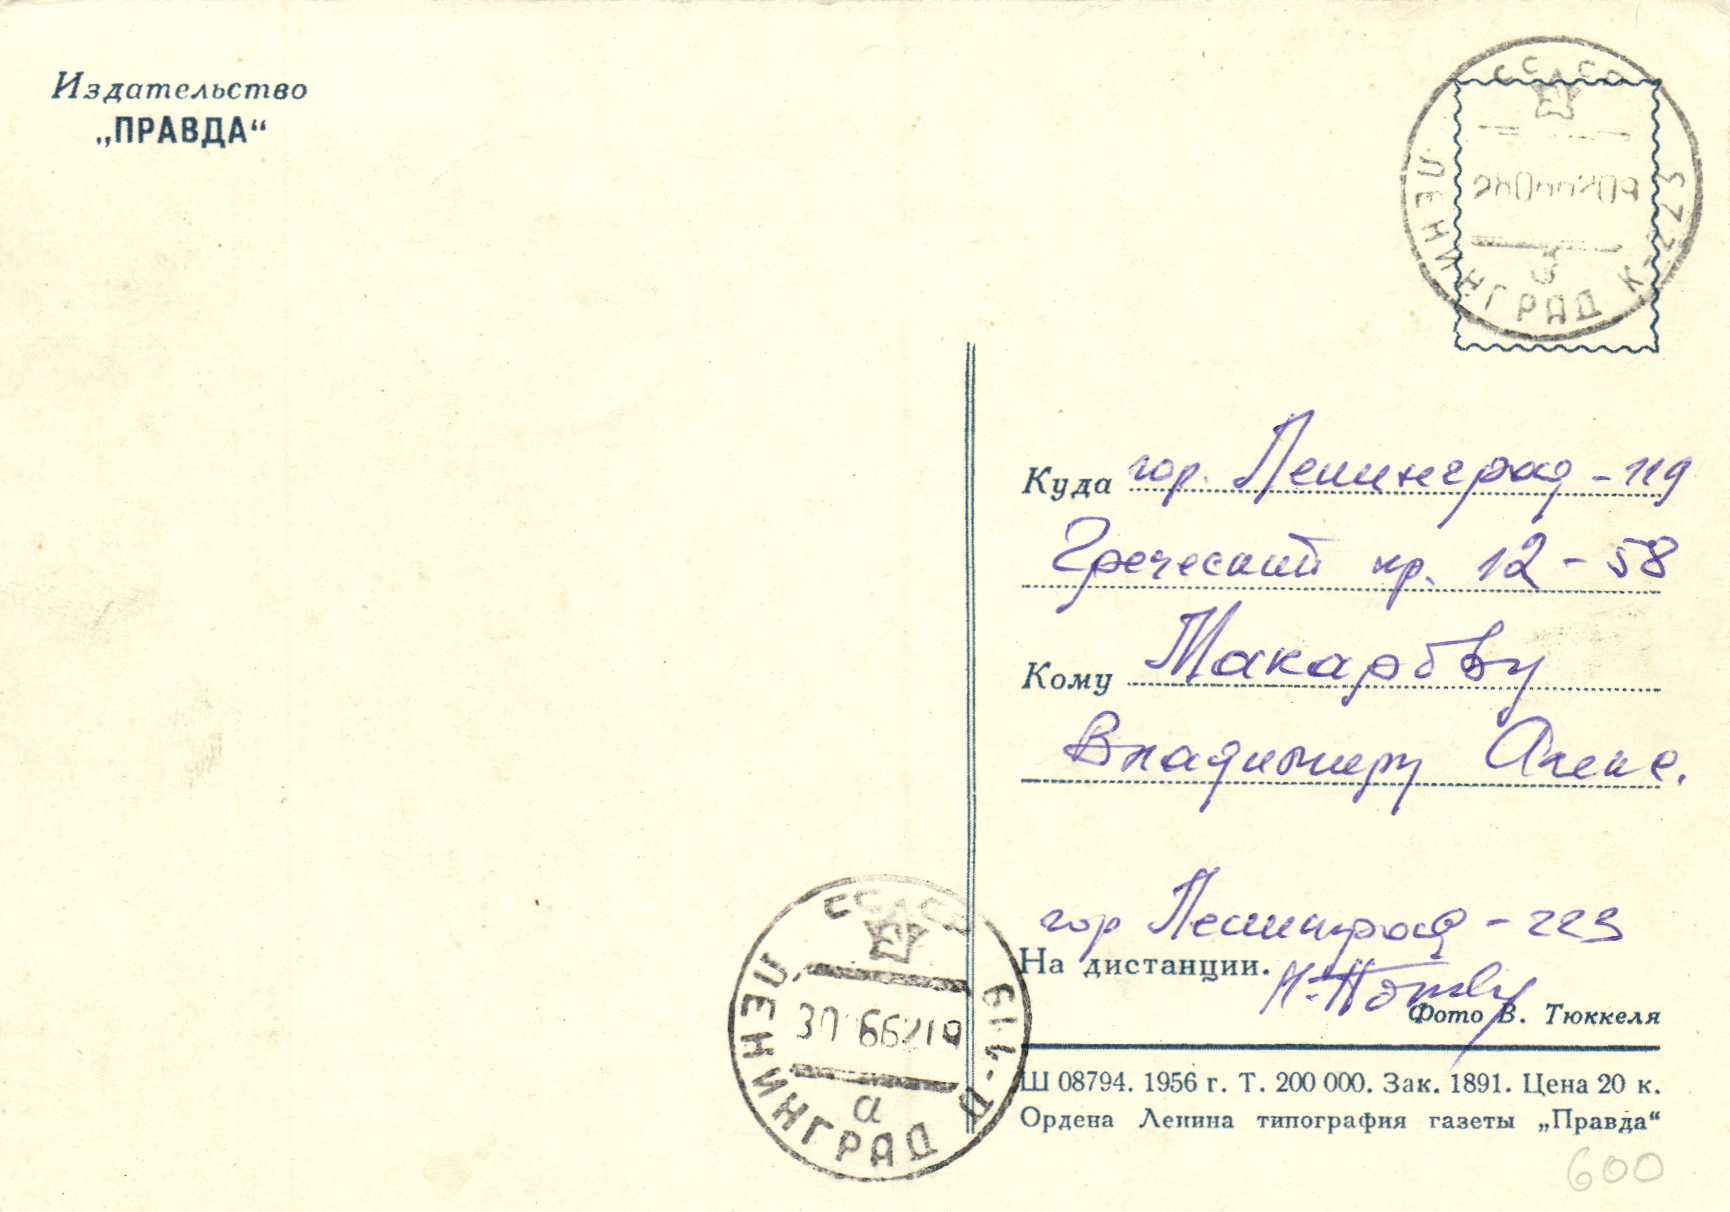 Издательство
„ПРАВДА“
СССР
ЛЕНИНГРАД К-223
Куда гор. Ленинград - 119
Греческий пр. 12 - 58
Кому Макарову
Владимиру
гор Ленинград - 223
На дистанции.
Фото В. Тюккеля
СССР
ЛЕНИНГРАД Д-119
а
Ш 08794. 1956 г. Т. 200 000. Зак. 1891. Цена 20 к.
Ордена Ленина типография газеты „Правда“
600